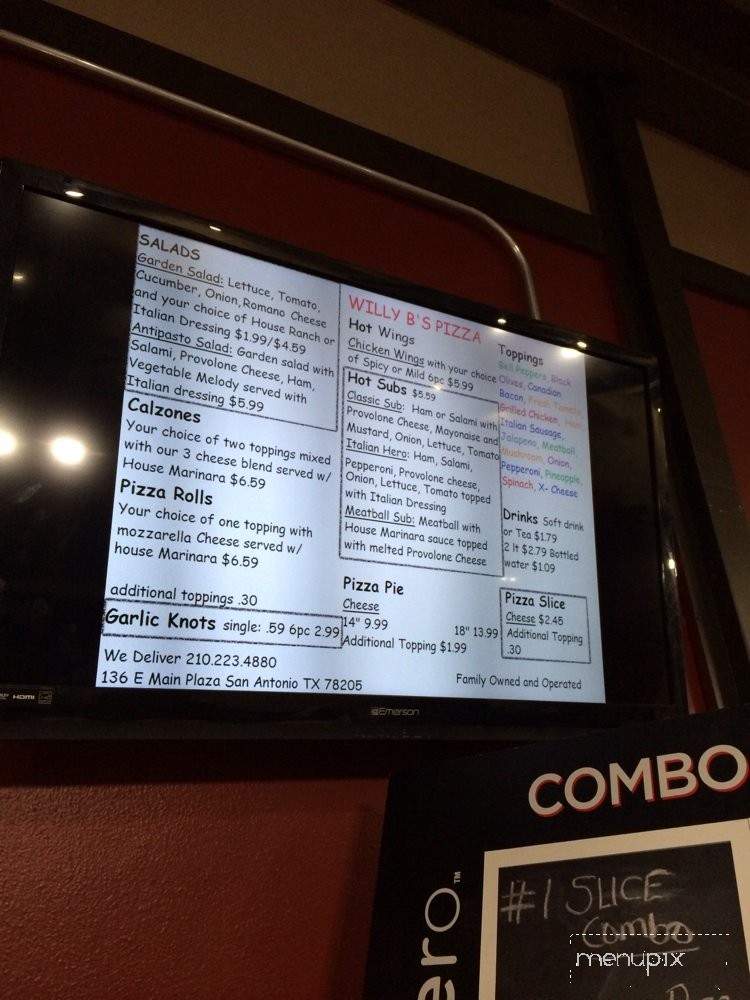 SALADS
Garden Salad: Lettuce, Tomato,
Cucumber, Onion, Romano Cheese
and your choice of House Ranch or
Italian Dressing $1.99/$4.59
Antipasto Salad: Garden salad with
Salami, Provolone Cheese, Ham,
Vegetable Melody served with
Italian dressing $5.99
Calzones
Your choice of two toppings mixed
with our 3 cheese blend served w/
House Marinara $6.59
Pizza Rolls
Your choice of one topping with
mozzarella Cheese served w/
house Marinara $6.59
additional toppings .30
Garlic Knots single: .59 6pc 2.99
We Deliver 210.223.4880
136 E Main Plaza San Antonio TX 78205
WILLY B'S PIZZA
Hot Wings
Chicken Wings with your choice
of Spicy or Mild 6pc $5.99
Hot Subs $5.59
Classic Sub: Ham or Salami with
Provolone Cheese, Mayonaise and
Mustard, Onion, Lettuce, Tomato
Italian Hero: Ham, Salami,
Pepperoni, Provolone cheese,
Onion, Lettuce, Tomato topped
with Italian Dressing
Meatball Sub: Meatball with
House Marinara sauce topped
with melted Provolone Cheese
Pizza Pie
Cheese
14" 9.99 18" 13.99
Additional Topping $1.99
Toppings
Bell Peppers, Black
Olives, Canadian
Bacon, Fresh Tomato
Grilled Chicken, Ham
Italian Sausage,
Jalapeno, Meatball,
Mushroom, Onion,
Pepperoni, Pineapple,
Spinach, X- Cheese
Drinks Soft drink
or Tea $1.79
2 lt $2.79 Bottled
water $1.09
Pizza Slice
Cheese $2.45
Additional Topping
.30
Family Owned and Operated
HDMI
Emerson
COMBO
#1 SLICE
Combo
ero™
menupix